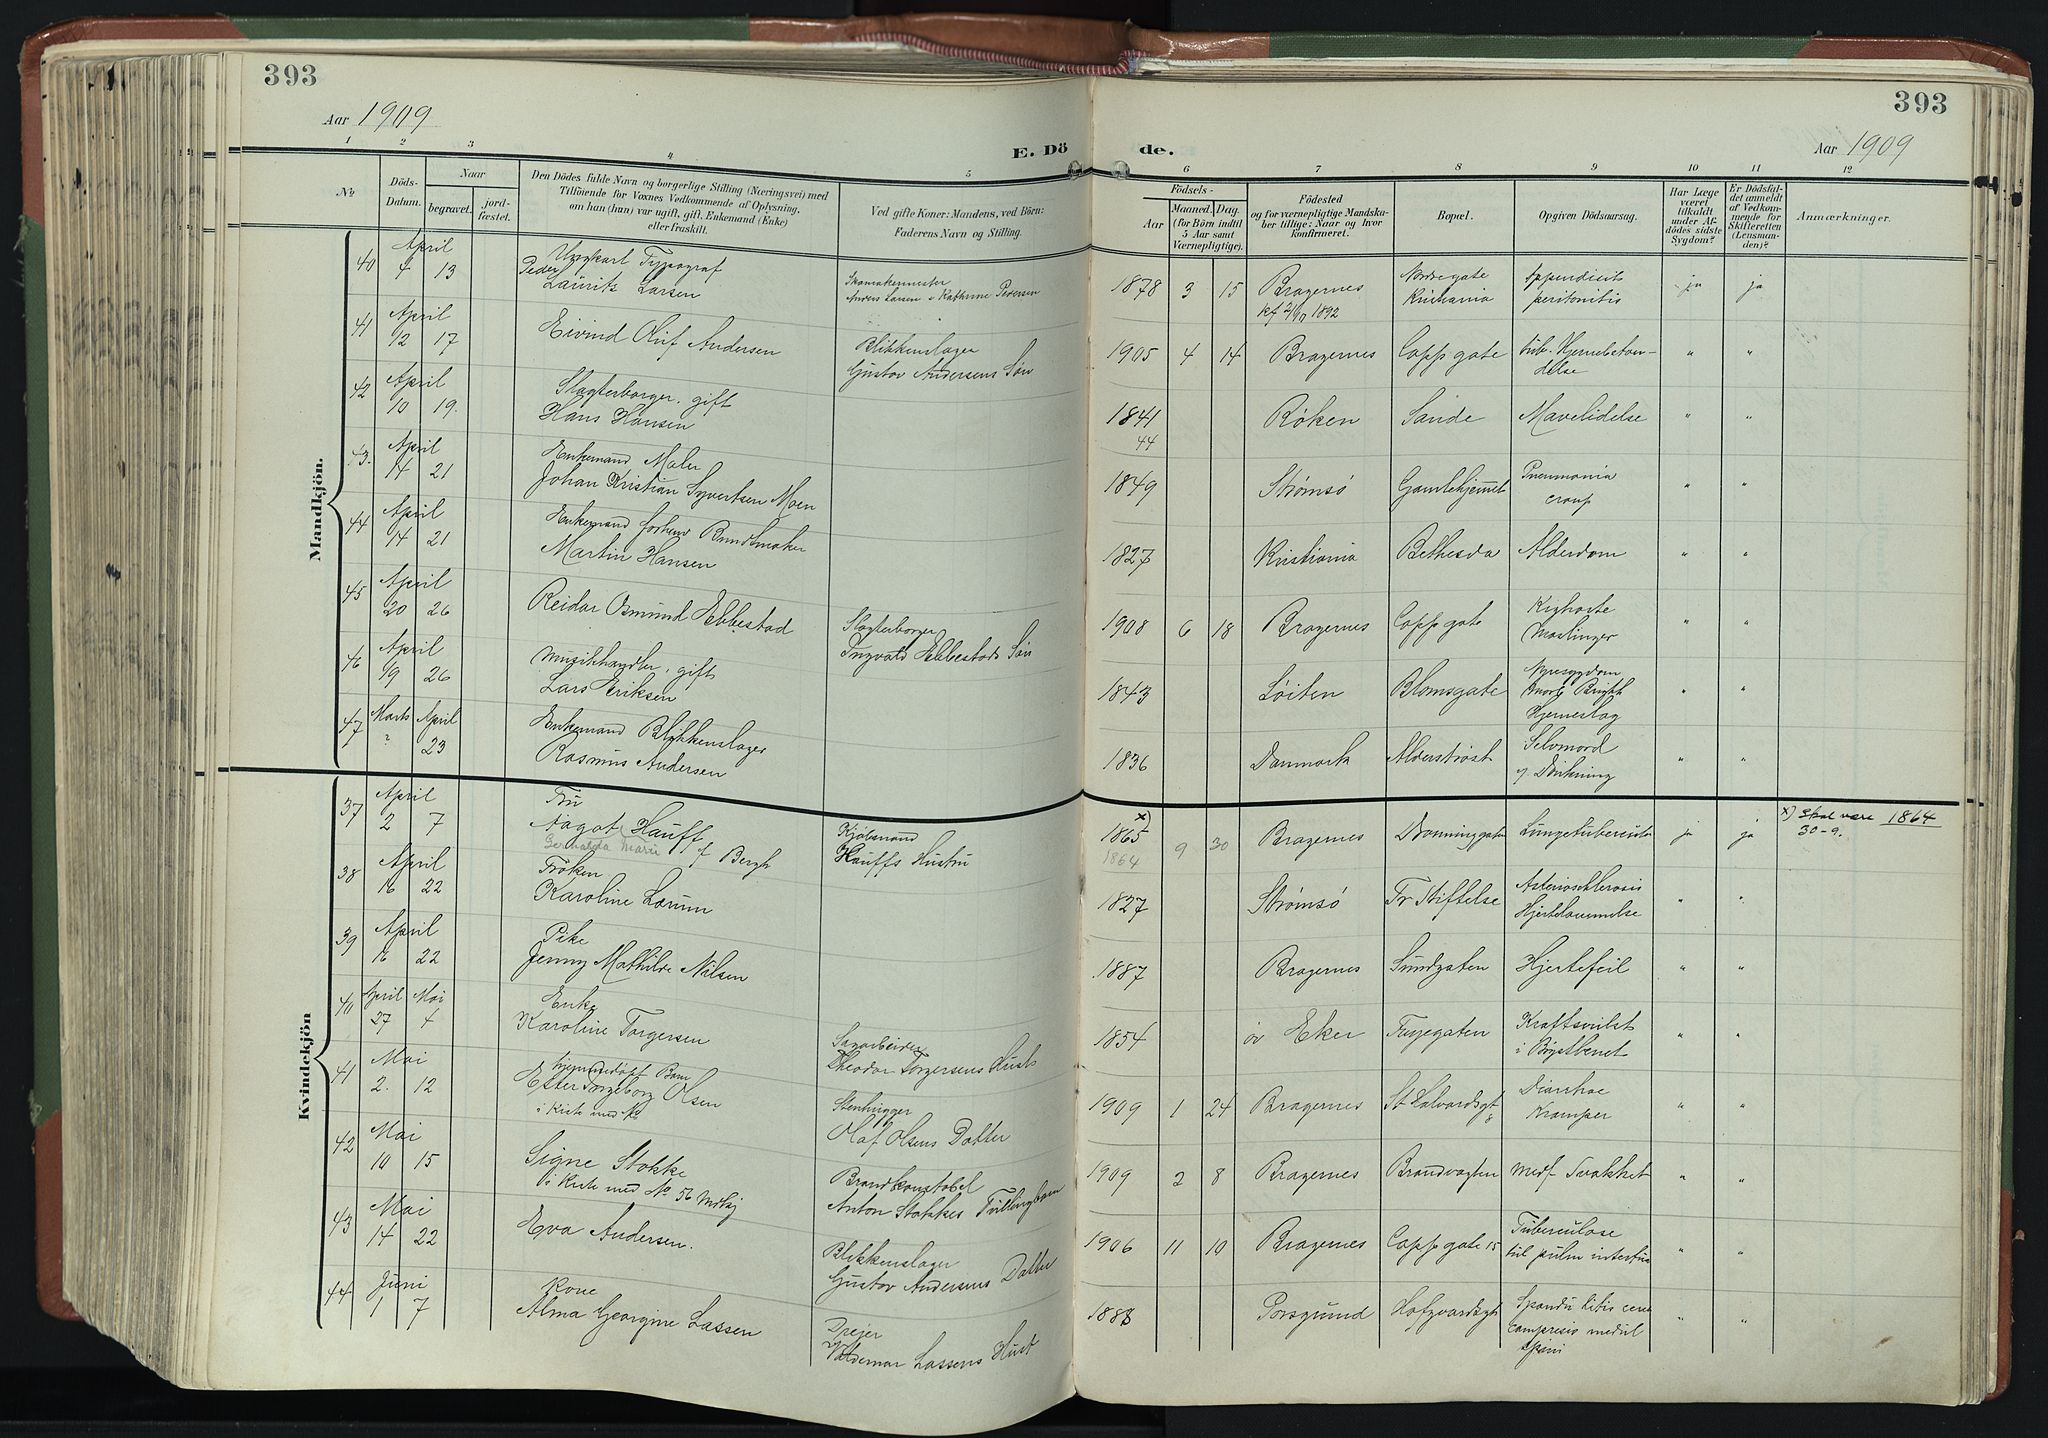 393
Aar 1909
E. Dö
1 2 3 4 5
№
Döds-Datum.
Naar
begravet.
jord-fæstet.
Den Dödes fulde Navn og borgerlige Stilling (Næringsvei) med
Tilföiende for Voxnes Vedkommende af Oplysning,
om han (hun) var ugift, gift, Enkemand (Enke)
eller fraskilt.
Ved gifte Koner: Mandens, ved Börn:
Faderens Navn og Stilling.
Mandkjön.
40 April 4 13
Ungkarl Typograf
Peder Laurits Larsen
Skomakermester
Anders Larsen o Kathrine Pedersen
41 April 12 17
Eivind Oluf Andersen
Blikkenslager
Gustav Andersens Søn
42 April 10 19.
Slagterborger, gift
Hans Hansen
43. April 14 21
Enkemand Maler
Johan Kristian Syvertsen Moen
44 April 14 21
Enkemand forhenv Bundtmaker
Martin Hansen
45 April 20 26
Reidar Osmund Ebbestad
Slagterborger
Ingvald Ebbestads Søn
46 April 19 26
Musikhandler, gift
Lars Eriksen
47 Marts ? April 23
Enkemand Blikkenslager
Rasmus Andersen
Kvindekjön
37 April 2 7
Fru
Aagot Hauff f Bergh
Gerhalda Marie
Kjøbmand
Hauffs Hustru
38 April 16 22
Frøken
Karoline Lorum
39 April 16 22
Pike
Jenny Mathilde Nilsen
40 April 27 Mai 4
Enke
Karoline Torgersen
Sagarbeider
Theodor Torgersens Hustr
41 Mai 2. 12
Hjemmedøpt Barn
Ester Torgeborg Olsen
i Kiste med No
Stenhugger
Olaf Olsens Datter
42 Mai 10 15
Signe Stokke
i Kiste med No 56 Mdkj
Brandkonstabel
Anton Stokkes Tvillingbarn
43 Mai 14 22
Eva Andersen.
Blikkenslager
Gustav Andersens Datter
44 Juni 1 7
Kone
Alma Georgine Lassen
Dreier
Valdemar Lassens Hust
393
de.
Aar 1909
6 7 8 9 10 11 12
Födsels-
Aar
Maaned. Dag.
(for Börn indtil
5 Aar samt
Værnepligtige).
Födested
og for værnepligtige Mandska-
ber tillige: Naar og hvor
konfirmeret.
Bopæl.
Opgiven Dödsaarsag.
Har Læge
været
tilkaldt
under Af-
dödes sidste
Sygdom?
Er Dödsfal-
det anmeldt
af Vedkom-
mende for
Skifteretten
(Lensman-
den)?
Anmærkninger.
1878 3 15 Bragernes Nordregate Appendicit ja ja
kf 2/10 1892 Kristiania peritonitis
1905 4 14 Bragernes Cappsgate tub. Hjernebetæn- " "
delse
1841 Røken Sande Mavelidelse " "
44
1849 Strømsø Gamlehjemmet Pneumonia " "
croup
1827 Kristiania Bethesda Alderdom " "
1908 6 18 Bragernes Cappsgate Kighoste " "
Mæslinger
1843 Løiten Blomsgate Nyresygdom " "
morb Bright
Hjerneslag
1836 Danmark Alderstrøst Selvmord " "
v. Drukning
x)
1865 9 30 Bragernes Dronninggaten Lungetuberculose ja ja x) Skal være 1864
1864 30-9.
1827 Strømsø Fr Stiftelse Arteriosclerosis " "
Hjertelammelse
1887 Bragernes Sundgaten Hjertefeil " "
1854 øv Eker Furjegaten Kraftsvulst " "
i Brystbenet
1909 1 24 Bragernes St Halvardsgt Diarrhoe " "
8 Kramper
1909 2 8 Bragernes Brandvagten Medf Svakhet " "
1906 11 10 Bragernes Cappsgate 15 Tuberculose " "
tub pulm intestin
1888 Porsgrund Hofgaardsgt Spondylitis cerv " "
compressio medul
spin